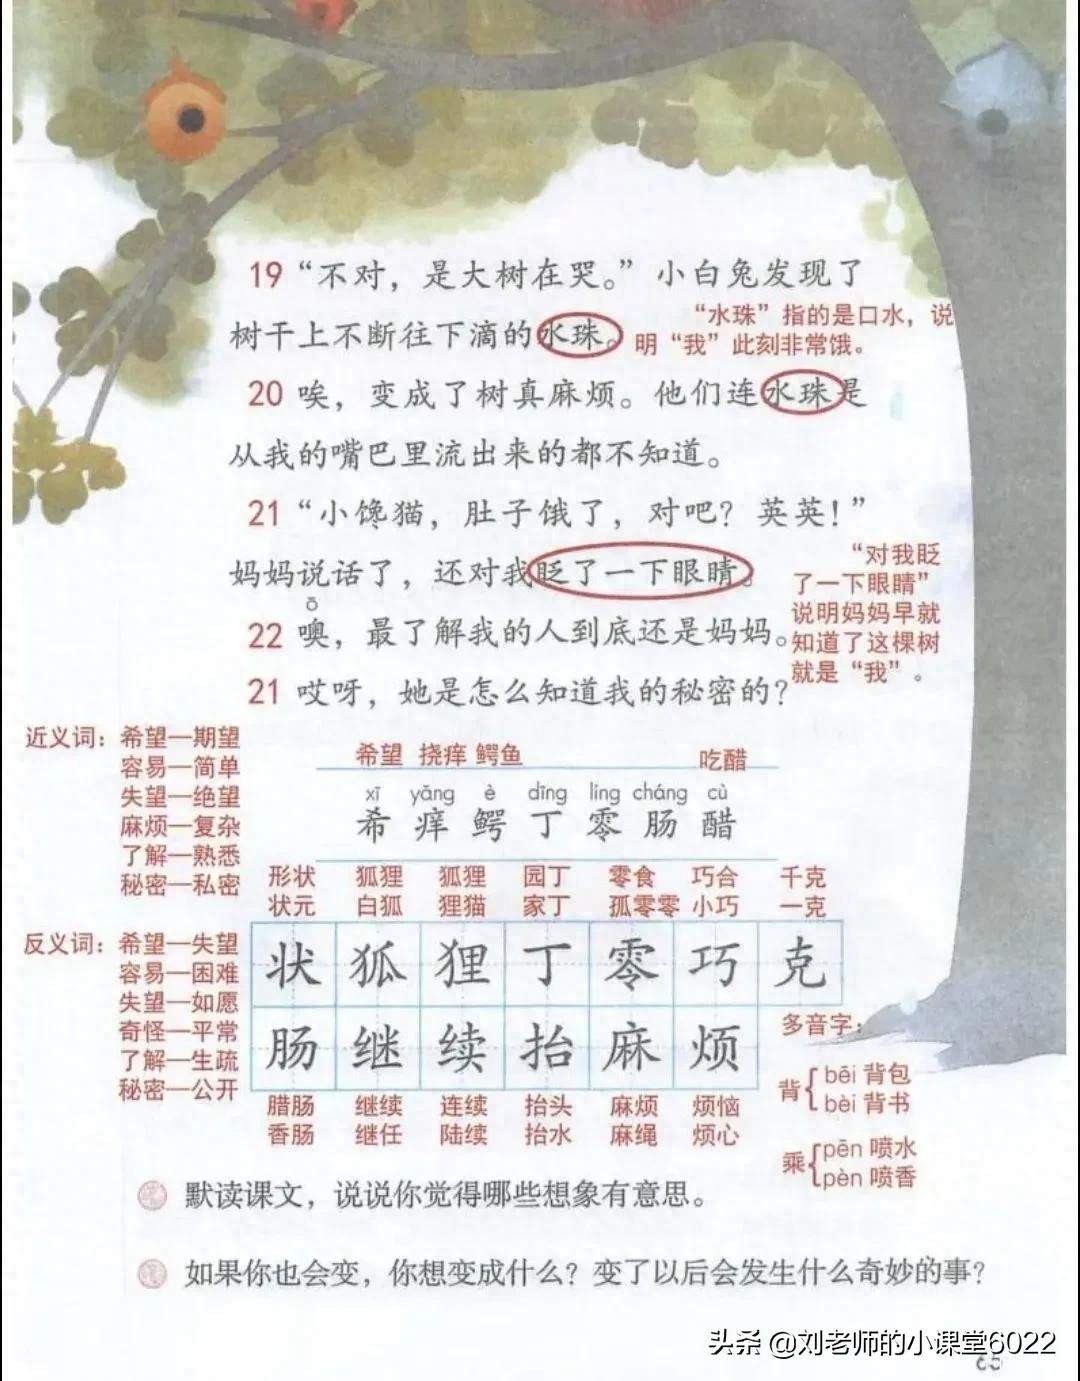 19 “不对，是大树在哭。”小白兔发现了
树干上不断往下滴的水珠。
“水珠”指的是口水，说
明“我”此刻非常饿。
20 唉，变成了树真麻烦。他们连水珠是
从我的嘴巴里流出来的都不知道。
21 “小馋猫，肚子饿了，对吧？英英！”
妈妈说话了，还对我眨了一下眼睛。
“对我眨
了一下眼睛”
说明妈妈早就
知道了这棵树
就是“我”。
ō
22 噢，最了解我的人到底还是妈妈。
21 哎呀，她是怎么知道我的秘密的？
近义词：希望—期望
容易—简单
失望—绝望
麻烦—复杂
了解—熟悉
秘密—私密
希望 挠痒 鳄鱼 吃醋
xī yǎng è dīng líng cháng cù
希 痒 鳄 丁 零 肠 醋
形状 狐狸 狐狸 园丁 零食 巧合 千克
状元 白狐 狸猫 家丁 孤零零 小巧 一克
反义词：希望—失望
容易—困难
失望—如愿
奇怪—平常
了解—生疏
秘密—公开
状 狐 狸 丁 零 巧 克
肠 继 续 抬 麻 烦
腊肠 继续 连续 抬头 麻烦 烦恼
香肠 继任 陆续 抬水 麻绳 烦心
多音字：
背 bēi 背包
bèi 背书
乘 pēn 喷水
pèn 喷香
默读课文，说说你觉得哪些想象有意思。
如果你也会变，你想变成什么？变了以后会发生什么奇妙的事？
头条 @刘老师的小课堂6022
65